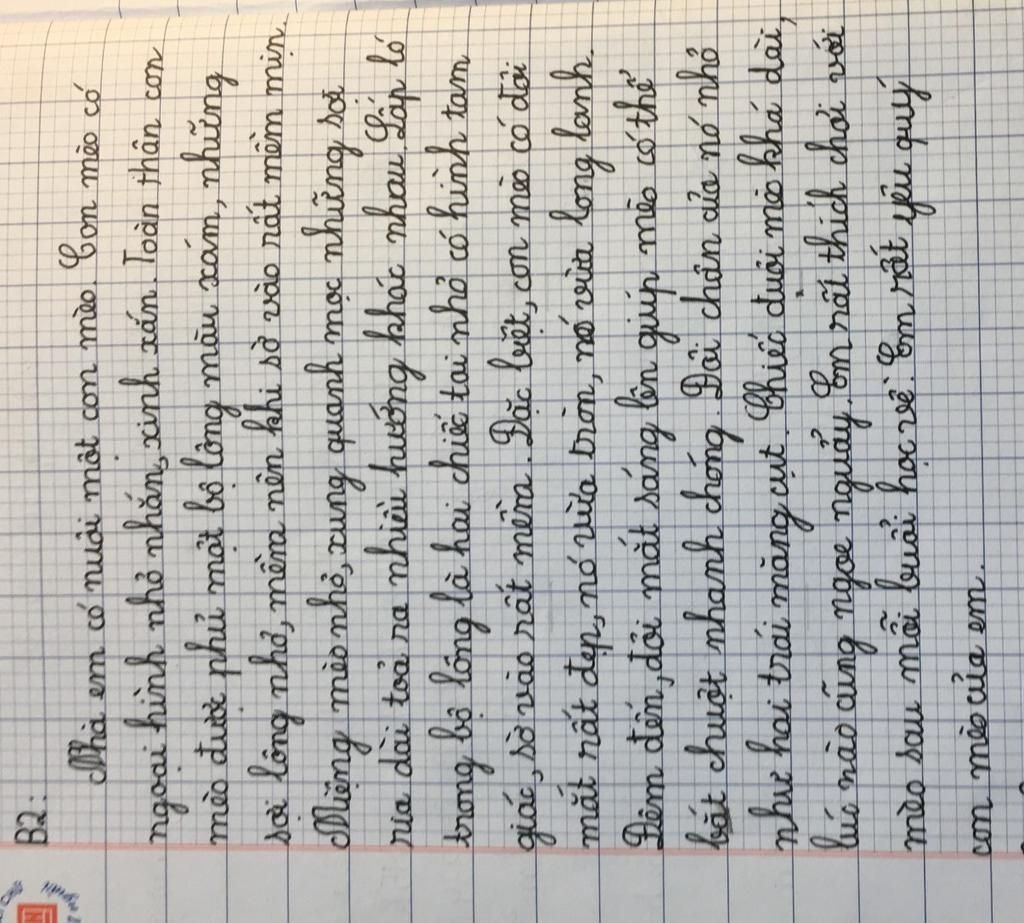 B2:
Nhà em có nuôi một con mèo. Con mèo có
ngoại hình nhỏ nhắn, xinh xắn. Toàn thân con
mèo được phủ một bộ lông màu xám, những
sợi lông nhỏ, mềm nên khi sờ vào rất mềm mịn.
Miệng mèo nhỏ, xung quanh mọc những sợi
ria dài toả ra nhiều hướng khác nhau. Lấp ló
trong bộ lông là hai chiếc tai nhỏ có hình tam
giác, sờ vào rất mềm. Đặc biệt, con mèo có đôi
mắt rất đẹp, nó vừa tròn, nó vừa long lanh.
Đêm đến, đôi mắt sáng lên giúp mèo có thể
bắt chuột nhanh chóng. Đôi chân của nó nhỏ
như hai trái măng cụt. Chiếc đuôi mèo khá dài,
lúc nào cũng ngoe nguẩy. Em rất thích chơi với
mèo sau mỗi buổi học về. Em rất yêu quý
con mèo của em.